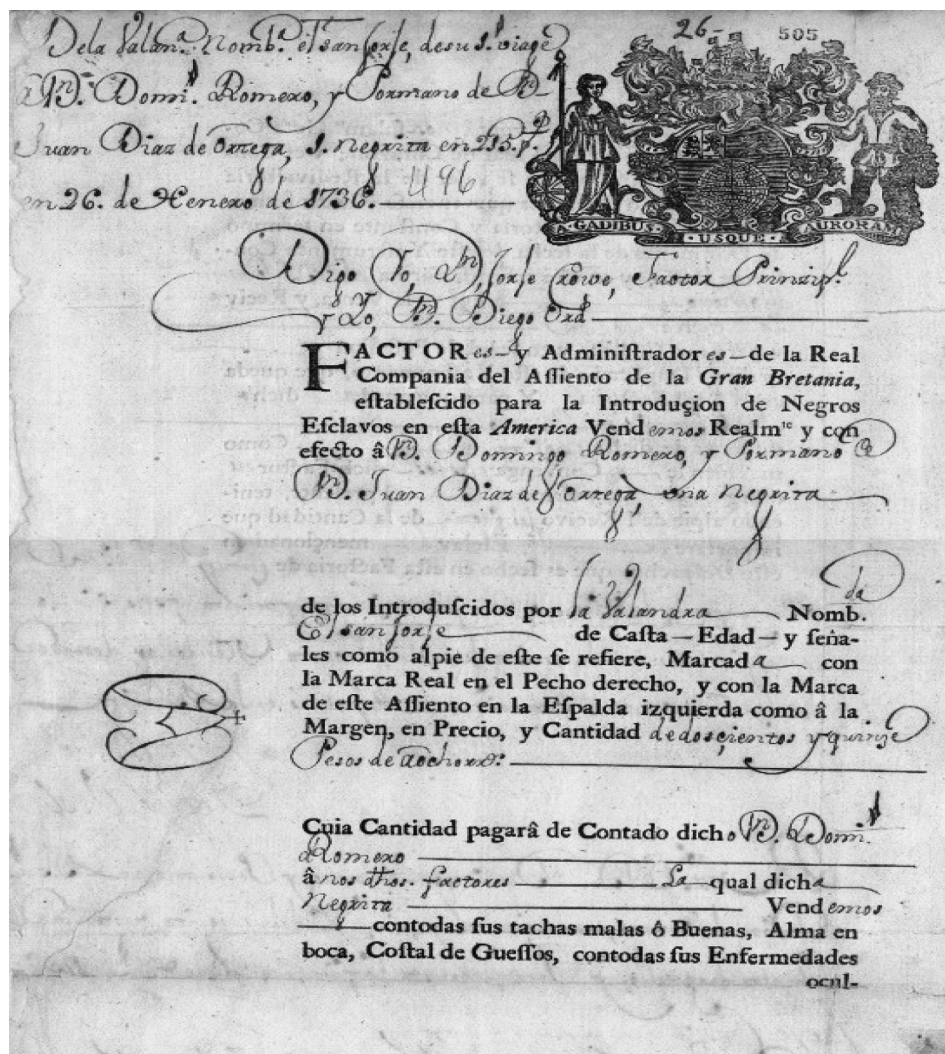 Dela Valan.ª Nomb.ª el san Jorje, de su 1.º viage
26-
505
â D.n Domi.º Romero, y Por mano de D.n
Juan Diaz de Ortega, 1. Negrita en 215.p.s
en 26. de Henero de 1736. 496
A·GADIBUS· ·USQUE· AURORAM
Digo Yo, D.n Jorje Crowe, Factor Prinzip.l
y Yo, D.n Diego Ord
FACTOR es — y Administrador es — de la Real
Compania del Assiento de la Gran Bretania,
establescido para la Introduçion de Negros
Esclavos en esta America Vendemos Realm.te y con
efecto â D.n Domingo Romero, y Por mano de
D.n Juan Diaz de Ortega, una Negrita
de los Introduscidos por la Valandra Nomb.da
El san Jorje de Casta — Edad — y seña-
les como alpie de este se refiere, Marcada con
la Marca Real en el Pecho derecho, y con la Marca
de este Assiento en la Espalda izquierda como â la
Margen, en Precio, y Cantidad de dosçientos y quinze
Pesos de aocho rr.s
Cuia Cantidad pagarâ de Contado dicho D.n Domi.º
Romero
â nos dhos. factores La qual dicha
Negrita Vendemos
contodas sus tachas malas ô Buenas, Alma en
boca, Costal de Guessos, contodas sus Enfermedades
ocul-